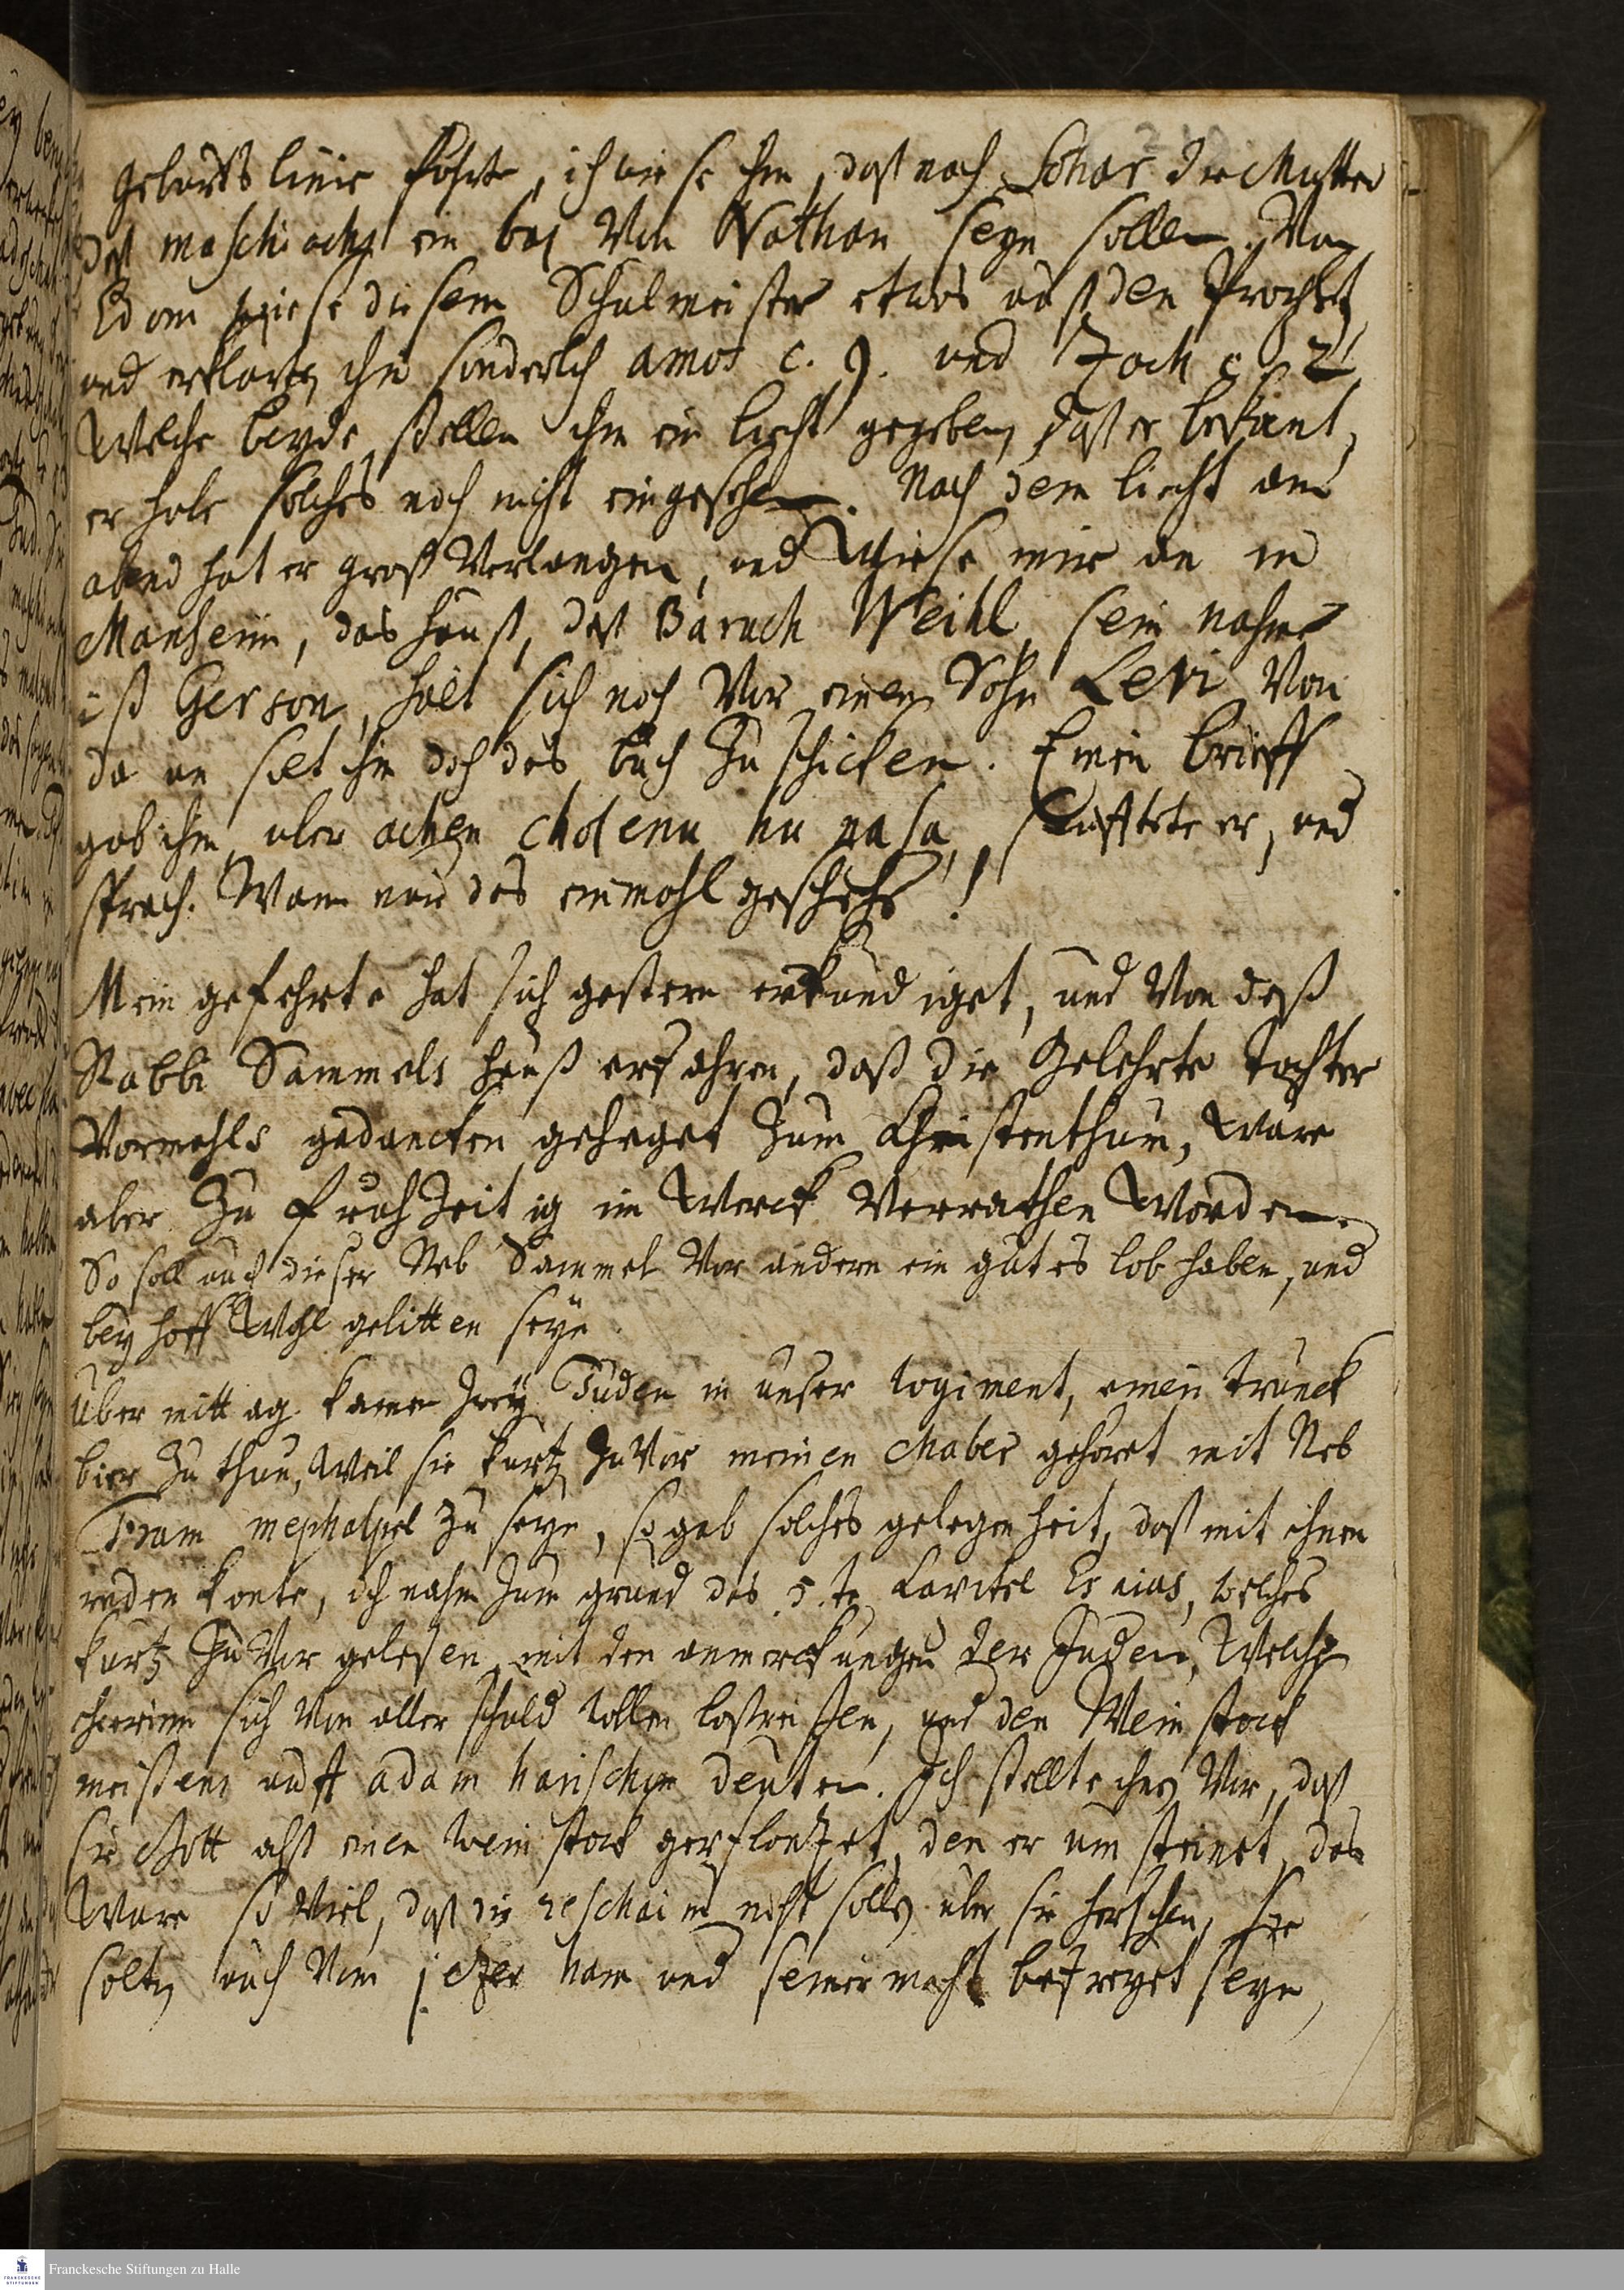 geburts linie führte, ich wiese ihm, daß nach Sohar die Mutter
deß maschiachs ein bas von Nathan seyn sollen. Von
Edom wiese diesem Schulmeister etwas auß den Prophet
und erklärte ihm sonderlich amos c. 9. und Zach c. 2
Welche beyde stellen ihm ein licht gegeben, daß er bekant,
er habe solches noch nicht eingesehen. Nach dem licht am
abend hat er groß Verlangen, und Wiese mir an in
Manheim, das hauß, deß Baruch Weihl, sein nahme
ist Gerson, hält sich noch Vor einen Sohn Levi Von
da an ihm doch das buch Zu schicken. Einen brieff
gab ihm, aber achen cholenu hu nasa, seufftete er, und
sprach. Wann nur das einmahl geschehe!
Mein gefehrte hat sich gestern erkundiget, und Von deß
Rabbi Sammels hauß erfahren, daß die Gelehrte tochter
Vormahls gedancken geheget Zum Christenthum, Wäre
aber Zu fruhzeitig im Werck Verrathen Worden.
So soll auch dieser Reb Sammel Vor andern ein gutes lob haben, und
bey hoff Wohl gelitten seyn
Über mittag kamen zwey Juden in unser logiment, einen trunck
bier Zu thun, Weil sie kurtz Zu Vor meinen chaber gehöret mit Reb
mephalpel Zu seyn, so gab solches gelegenheit, daß mit ihnen
reden konte, ich nahm Zum grund das 5.te Capitel Esaias, welches
kurtz Zu Vor gelesen mit den anmerckungen der Juden, Welche
hierinn sich Von aller schuld wollen loßreissen, und den Wein stock
meistens auff adam harischon deuten. Ich stellte ihnen Vor, daß
sie Gott alß einen Wein stock gepflantzet, den er um steinet, das
Wäre so Viel, daß die reschaim nicht sollen über sie herschen, sie
solten auch Vom jezer hara und seiner macht befreyet seyn,
Franckesche Stiftungen zu Halle